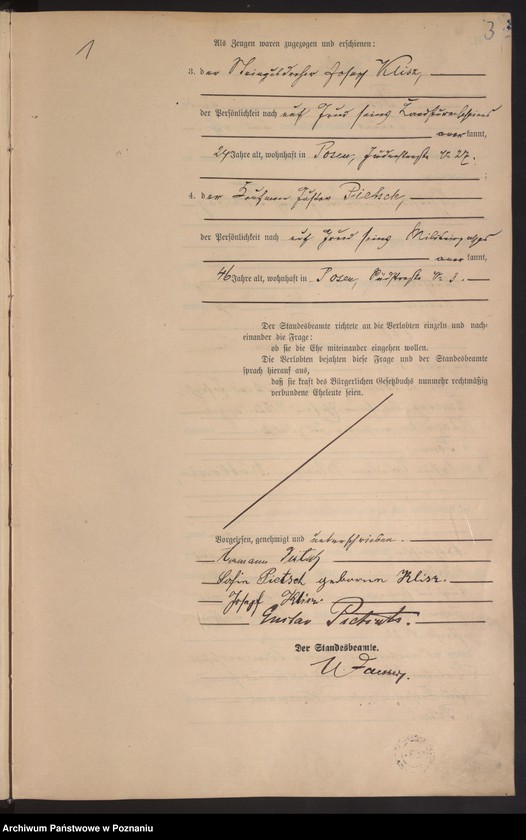 1
3
Als Zeugen waren zugezogen und erschienen:
3. der Josef Klisz,
der Persönlichkeit nach auf Grund seines Landsturmscheines
anerkannt,
24 Jahre alt, wohnhaft in Posen, 27.
4. der Kaufmann Gustav Pietsch,
der Persönlichkeit nach auf Grund seines Militärpasses
anerkannt,
46 Jahre alt, wohnhaft in Posen, 3.
Der Standesbeamte richtete an die Verlobten einzeln und nach-
einander die Frage:
ob sie die Ehe miteinander eingehen wollen.
Die Verlobten bejahten diese Frage und der Standesbeamte
sprach hierauf aus,
daß sie kraft des Bürgerlichen Gesetzbuchs nunmehr rechtmäßig
verbundene Eheleute seien.
Vorgelesen, genehmigt und unterschrieben.
Hermann
Sofie Pietsch geborene Klisz.
Josef Klisz
Gustav
Der Standesbeamte.
Archiwum Państwowe w Poznaniu